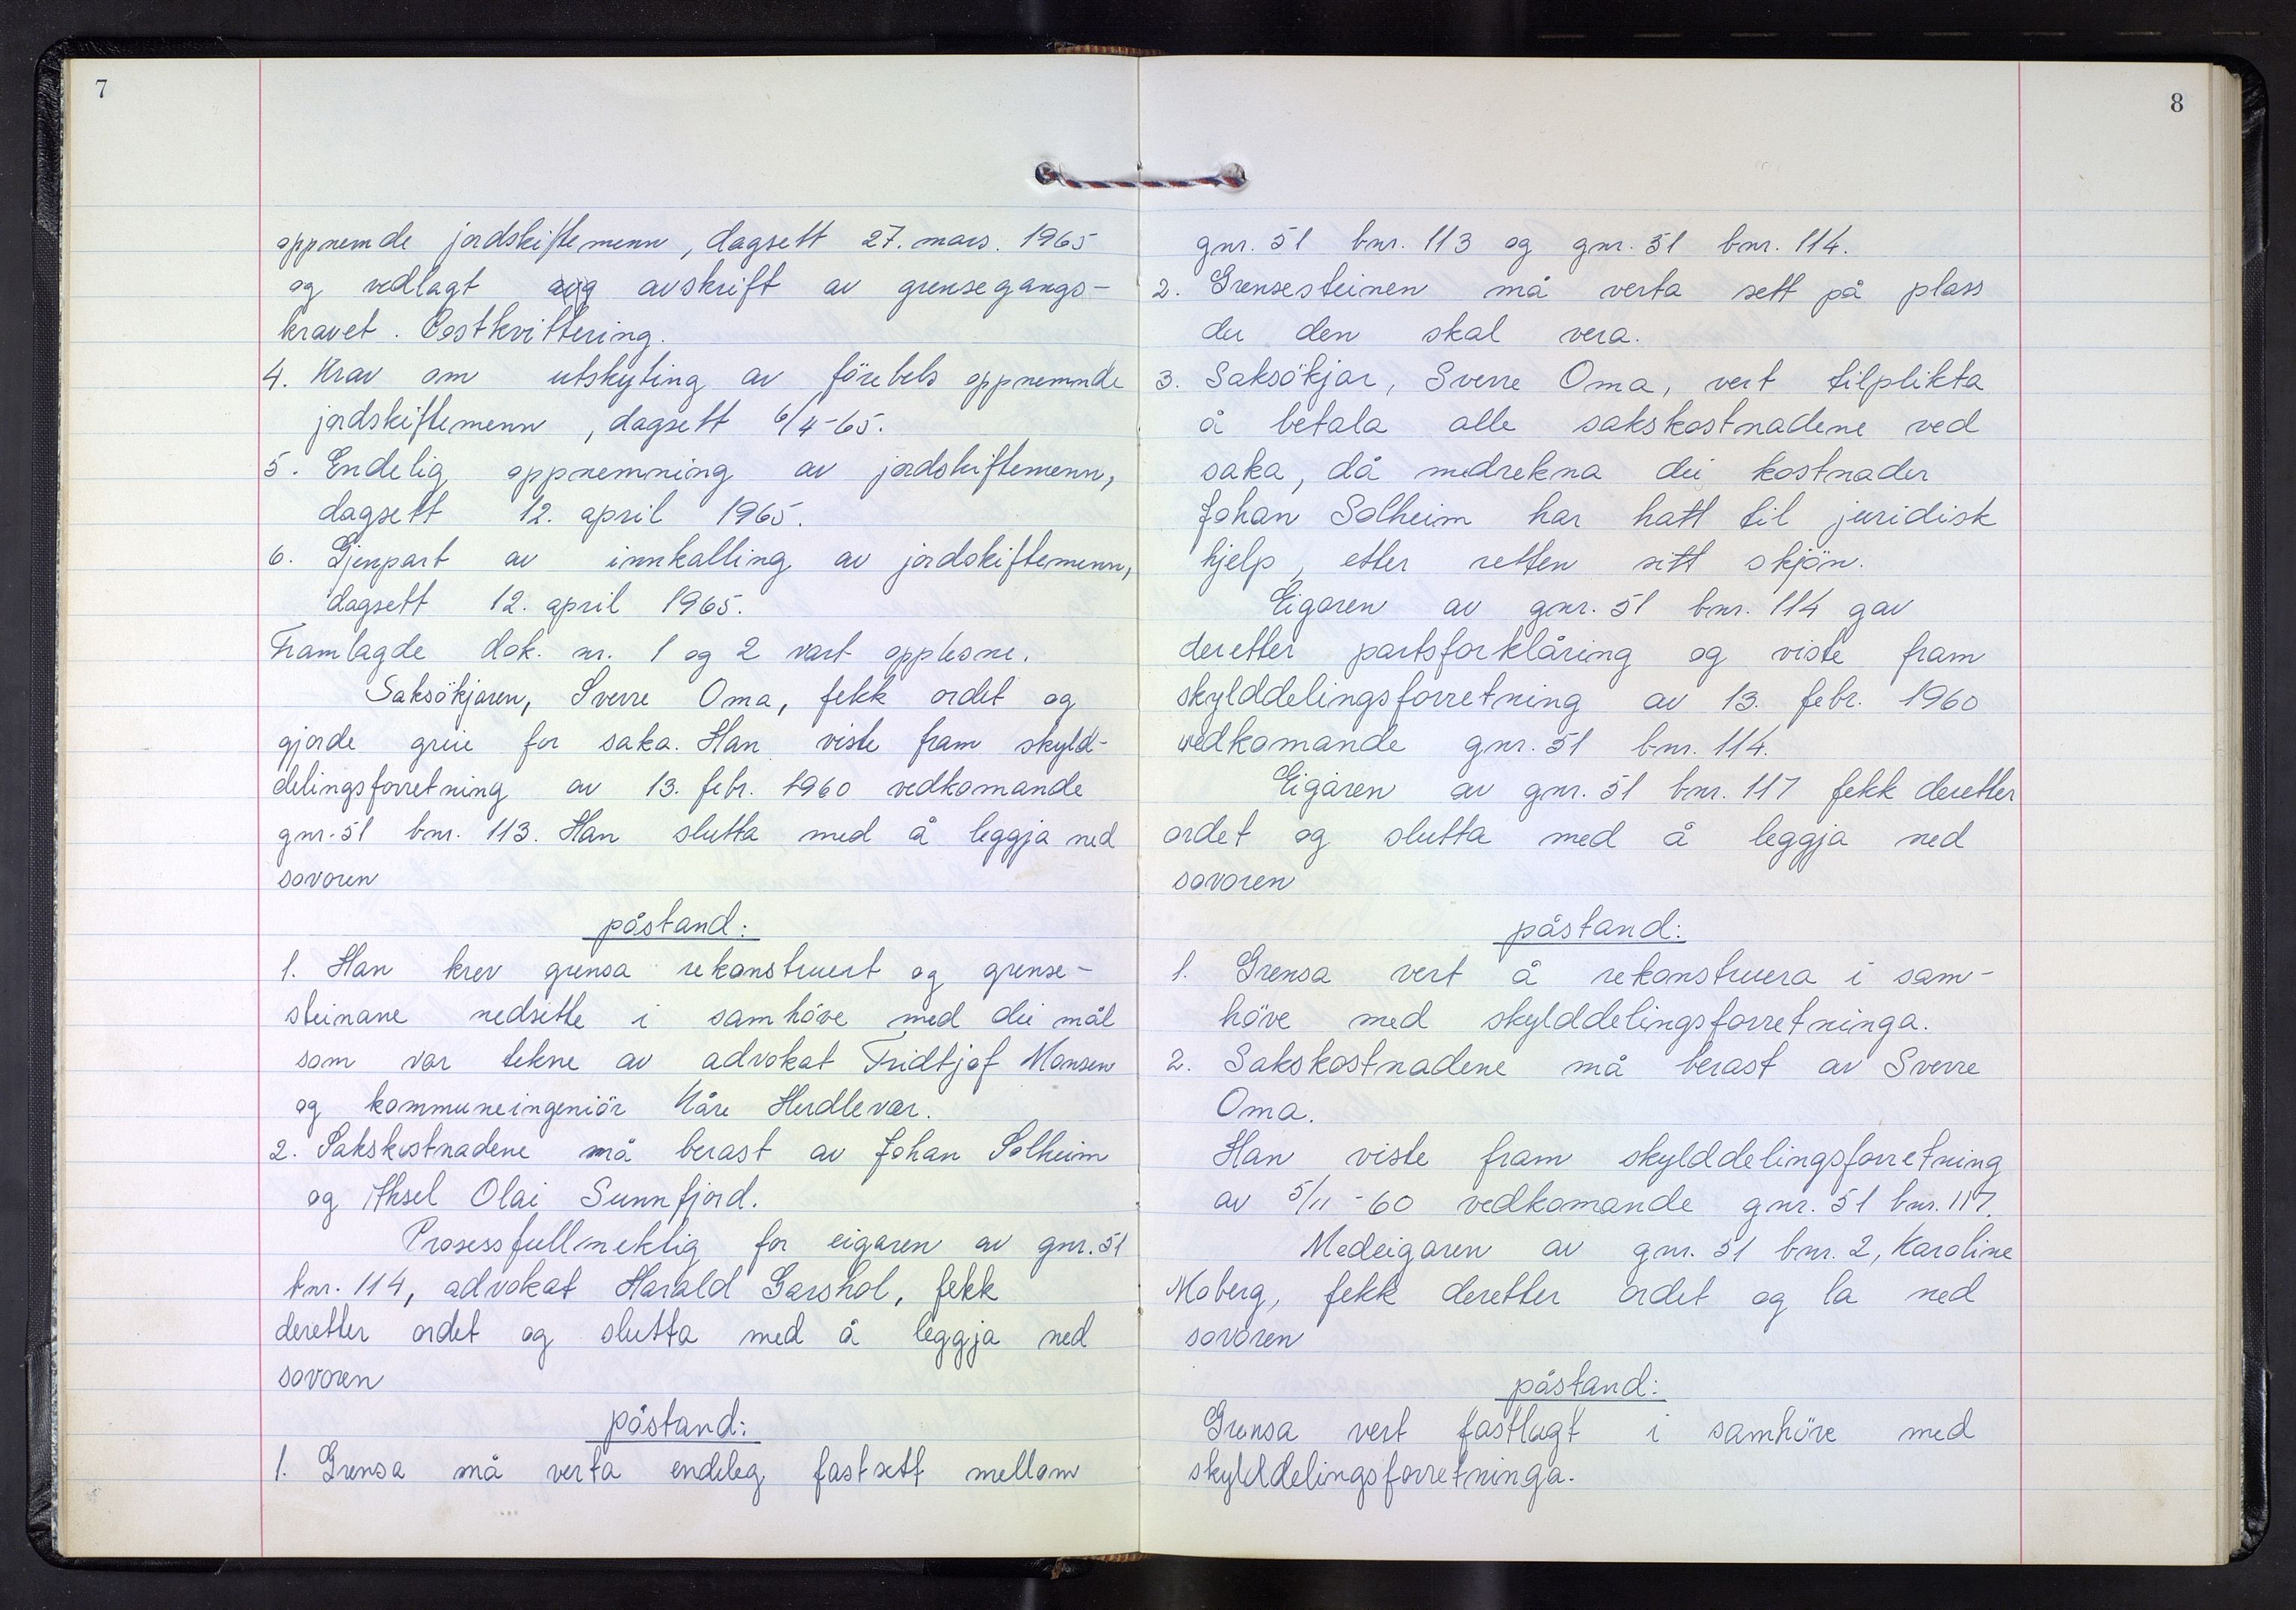 7
oppnemde jordskiftemenn, dagsett 27. mars. 1965
og vedlagt avskrift av grensegangs-
kravet. Postkvittering.
4. Krav om utskyting av förebels oppnemnde
jordskiftemenn, dagsett 6/4-65.
5. Endelig oppnemning av jordskiftemenn,
dagsett 12. april 1965.
6. Gjenpart av innkalling av jordskiftemenn,
dagsett 12. april 1965.
Framlagde dok. nr. 1 og 2 vart opplesne.
Saksökjaren, Sverre Oma, fekk ordet og
gjorde greie for saka. Han viste fram skyld-
delingsforretning av 13. febr. 1960 vedkomande
gnr. 51 bnr. 113. Han slutta med å leggja ned
sovoren
påstand:
1. Han krev grensa rekonstruert og grense-
steinane nedsette i samhöve med dei mål
som var tekne av advokat Fridtjof Monsen
og kommuneingeniör Kåre Herdlevær.
2. Sakskostnadene må berast av Johan Solheim
og Aksel Olai Sunnfjord.
Prosessfullmektig for eigaren av gnr. 51
bnr. 114, advokat Harald Garshol, fekk
deretter ordet og slutta med å leggja ned
sovoren
påstand:
1. Grensa må verta endeleg fastsett mellom
8
gnr. 51 bnr. 113 og gnr. 51 bnr. 114.
2. Grensesteinen må verta sett på plass
der den skal vera.
3. Saksökjar, Sverre Oma, vert tilplikta
å betala alle sakskostnadene ved
saka, då medrekna dei kostnader
Johan Solheim har hatt til juridisk
hjelp, etter retten sitt skjön.
Eigaren av gnr. 51 bnr. 114 gav
deretter partsforklåring og viste fram
skylddelingsforretning av 13. febr. 1960
vedkomande gnr. 51 bnr. 114.
Eigaren av gnr. 51 bnr. 117 fekk deretter
ordet og slutta med å leggja ned
sovoren
påstand:
1. Grensa vert å rekonstruera i sam-
höve med skylddelingsforretninga.
2. Sakskostnadene må berast av Sverre
Oma.
Han viste fram skylddelingsforretning
av 5/11-60 vedkomande gnr. 51 bnr. 117.
Medeigaren av gnr. 51 bnr. 2, Karoline
Moberg, fekk deretter ordet og la ned
sovoren
påstand:
Grensa vert fastlagt i samhöve med
skylddelingsforretninga.